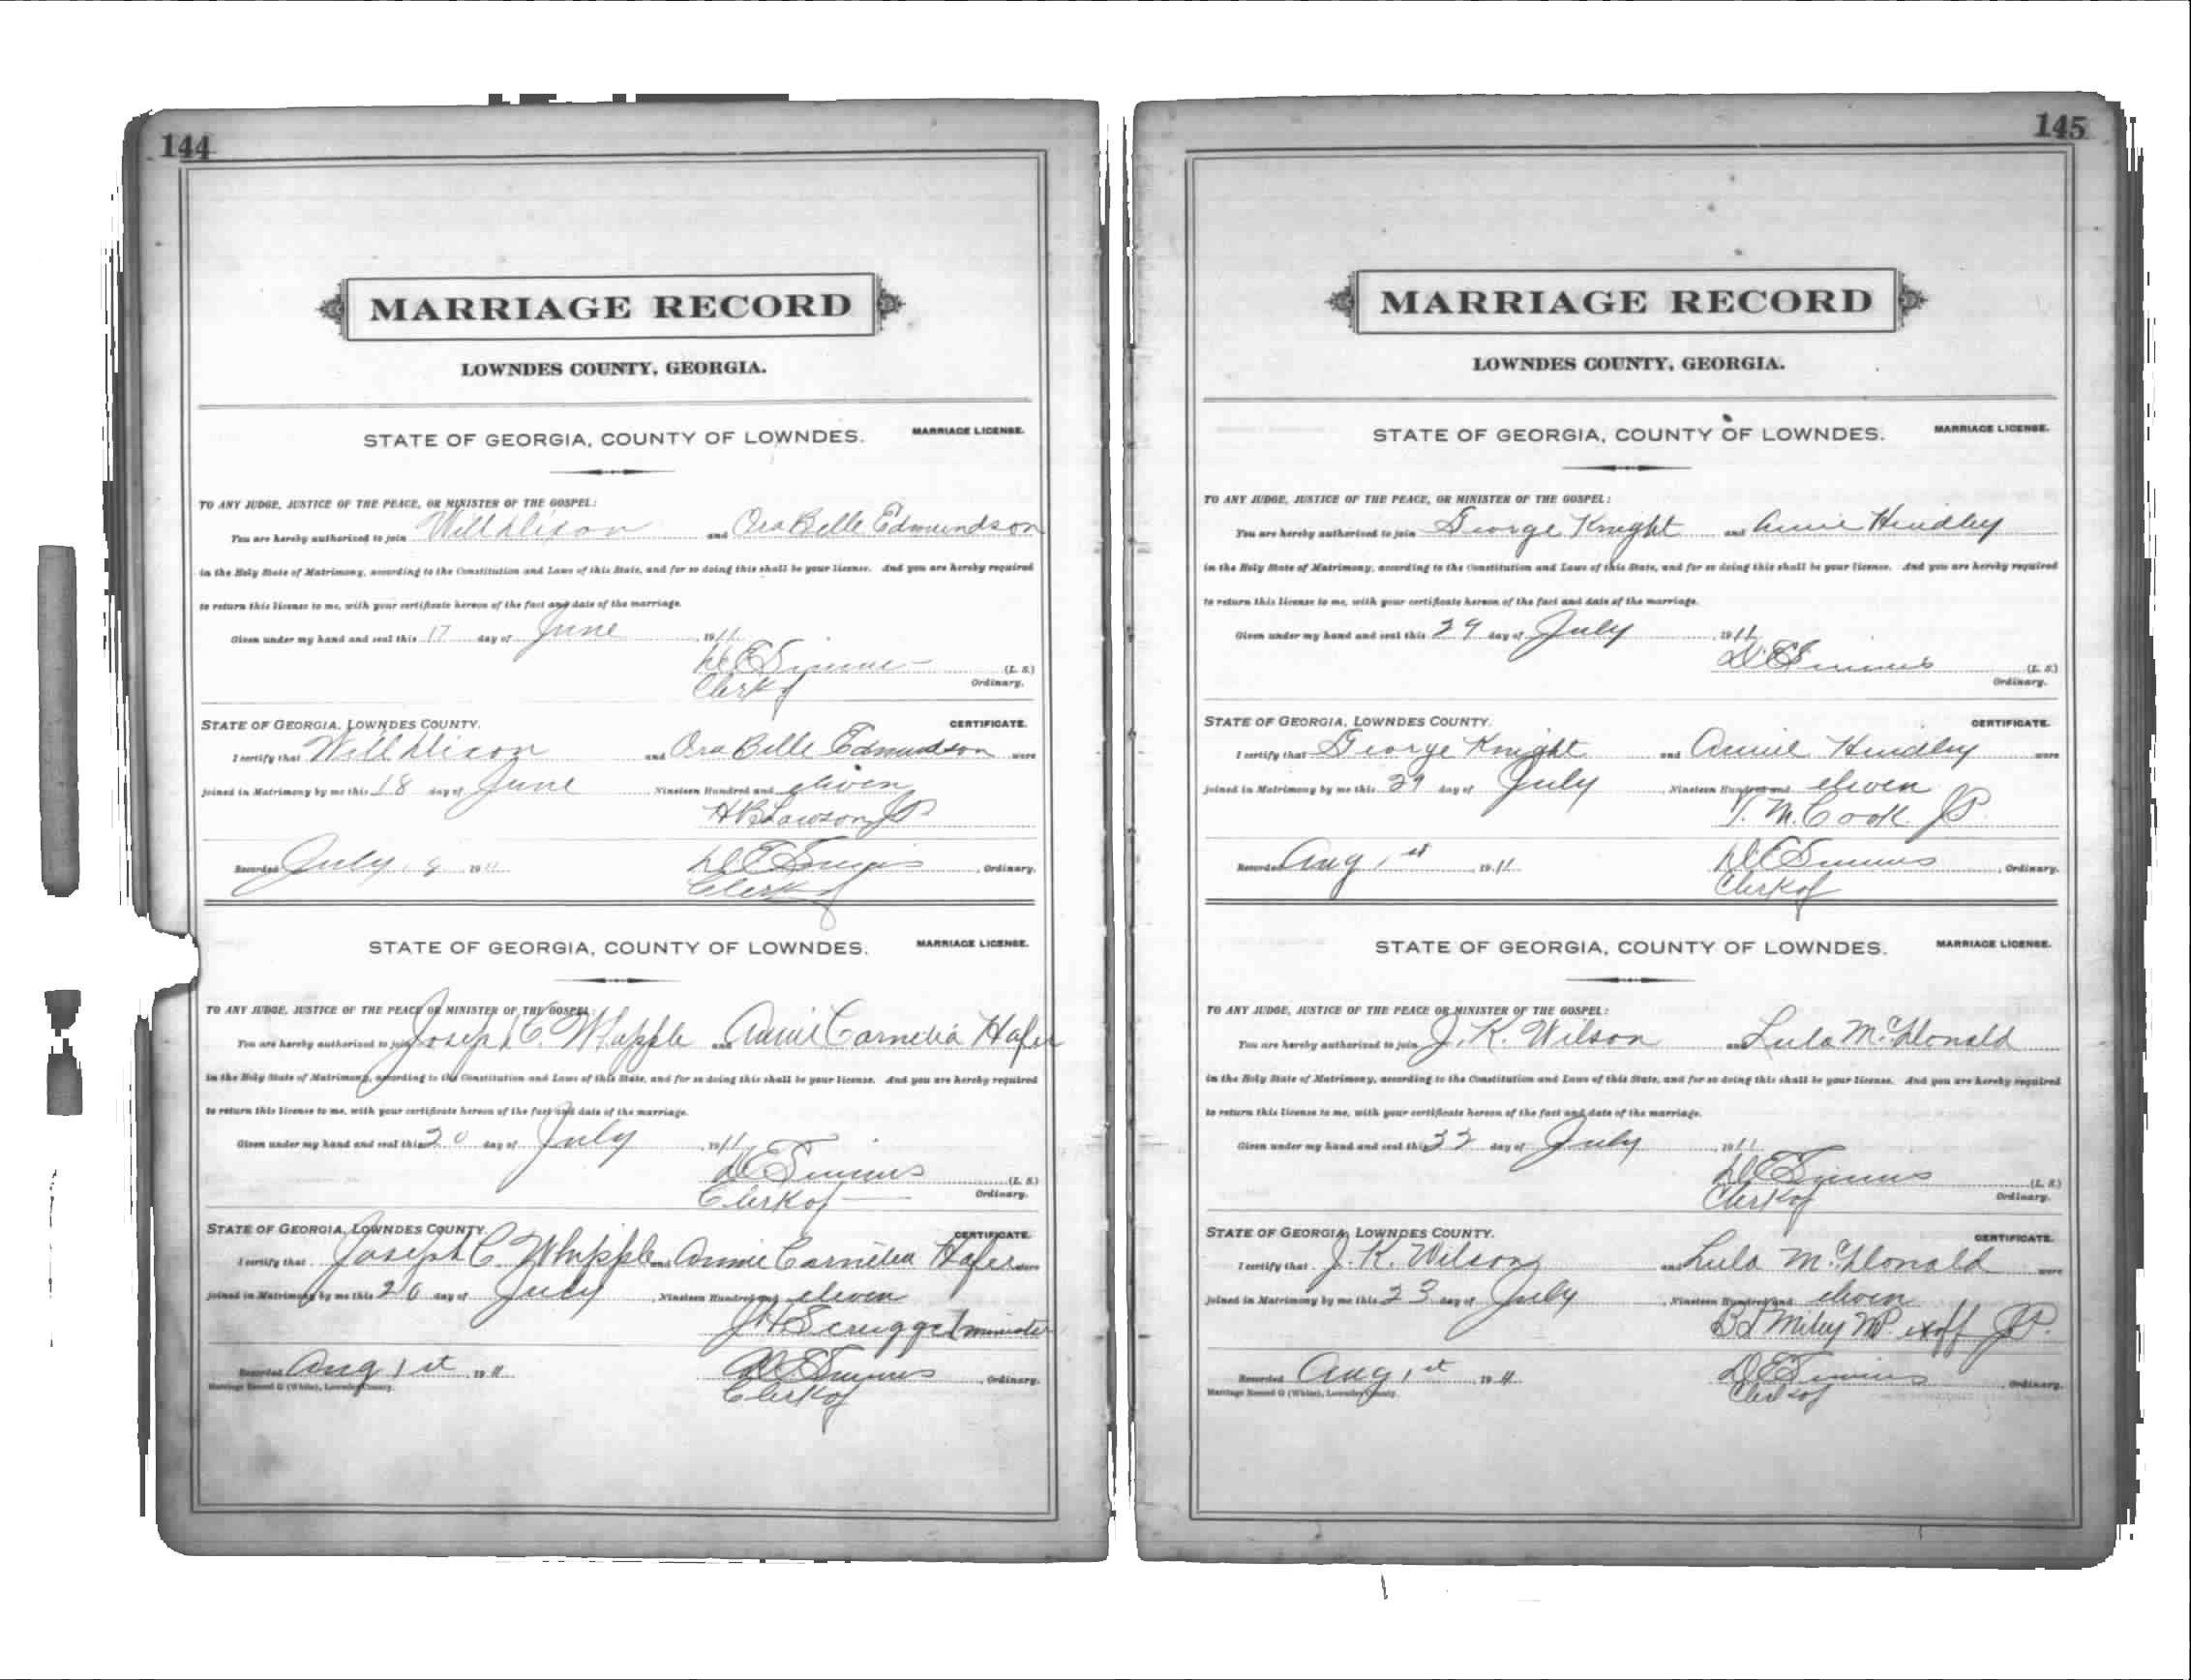 144
MARRIAGE RECORD
LOWNDES COUNTY, GEORGIA.
STATE OF GEORGIA, COUNTY OF LOWNDES. MARRIAGE LICENSE.
TO ANY JUDGE, JUSTICE OF THE PEACE, OR MINISTER OF THE GOSPEL:
You are hereby authorized to join Will Dixon and Ora Belle Edmundson
in the Holy State of Matrimony, according to the Constitution and Laws of this State, and for so doing this shall be your license. And you are hereby required
to return this license to me, with your certificate hereon of the fact and date of the marriage.
Given under my hand and seal this 17 day of June, 1911
Simms (L. S.)
Clerk of Ordinary.
STATE OF GEORGIA, LOWNDES COUNTY. CERTIFICATE.
I certify that Will Dixon and Ora Belle Edmundson were
joined in Matrimony by me this 18 day of June, Nineteen Hundred and eleven
H B Lawson JP
Recorded July 9 1911 Simms, Ordinary.
Clerk of
STATE OF GEORGIA, COUNTY OF LOWNDES. MARRIAGE LICENSE.
TO ANY JUDGE, JUSTICE OF THE PEACE OR MINISTER OF THE GOSPEL:
You are hereby authorized to join Joseph C. Whipple and Annie Cornelia Hafer
in the Holy State of Matrimony, according to the Constitution and Laws of this State, and for so doing this shall be your license. And you are hereby required
to return this license to me, with your certificate hereon of the fact and date of the marriage.
Given under my hand and seal this 20 day of July, 1911
Simms (L. S.)
Clerk of Ordinary.
STATE OF GEORGIA, LOWNDES COUNTY. CERTIFICATE.
I certify that Joseph C. Whipple and Annie Cornelia Hafer were
joined in Matrimony by me this 26 day of July, Nineteen Hundred and eleven
J H Scruggs minister
Recorded Aug 1st 1911 Simms, Ordinary.
Marriage Record G (White), Lowndes County. Clerk of
145
MARRIAGE RECORD
LOWNDES COUNTY, GEORGIA.
STATE OF GEORGIA, COUNTY OF LOWNDES. MARRIAGE LICENSE.
TO ANY JUDGE, JUSTICE OF THE PEACE, OR MINISTER OF THE GOSPEL:
You are hereby authorized to join George Knight and Annie Hindley
in the Holy State of Matrimony, according to the Constitution and Laws of this State, and for so doing this shall be your license. And you are hereby required
to return this license to me, with your certificate hereon of the fact and date of the marriage.
Given under my hand and seal this 29 day of July, 1911
Simms (L. S.)
Ordinary.
STATE OF GEORGIA, LOWNDES COUNTY. CERTIFICATE.
I certify that George Knight and Annie Hindley were
joined in Matrimony by me this 29 day of July, Nineteen Hundred and eleven
T. M. Cook JP.
Recorded Aug 1st, 1911 Simms, Ordinary.
Clerk of
STATE OF GEORGIA, COUNTY OF LOWNDES. MARRIAGE LICENSE.
TO ANY JUDGE, JUSTICE OF THE PEACE OR MINISTER OF THE GOSPEL:
You are hereby authorized to join J. K. Wilson and Lula McDonald
in the Holy State of Matrimony, according to the Constitution and Laws of this State, and for so doing this shall be your license. And you are hereby required
to return this license to me, with your certificate hereon of the fact and date of the marriage.
Given under my hand and seal this 22 day of July, 1911
Simms (L. S.)
Clerk of Ordinary.
STATE OF GEORGIA, LOWNDES COUNTY. CERTIFICATE.
I certify that J. K. Wilson and Lula McDonald were
joined in Matrimony by me this 23 day of July, Nineteen Hundred and eleven
Miley NP exoff JP.
Recorded Aug 1st, 1911 Simms, Ordinary.
Marriage Record G (White), Lowndes County. Clerk of